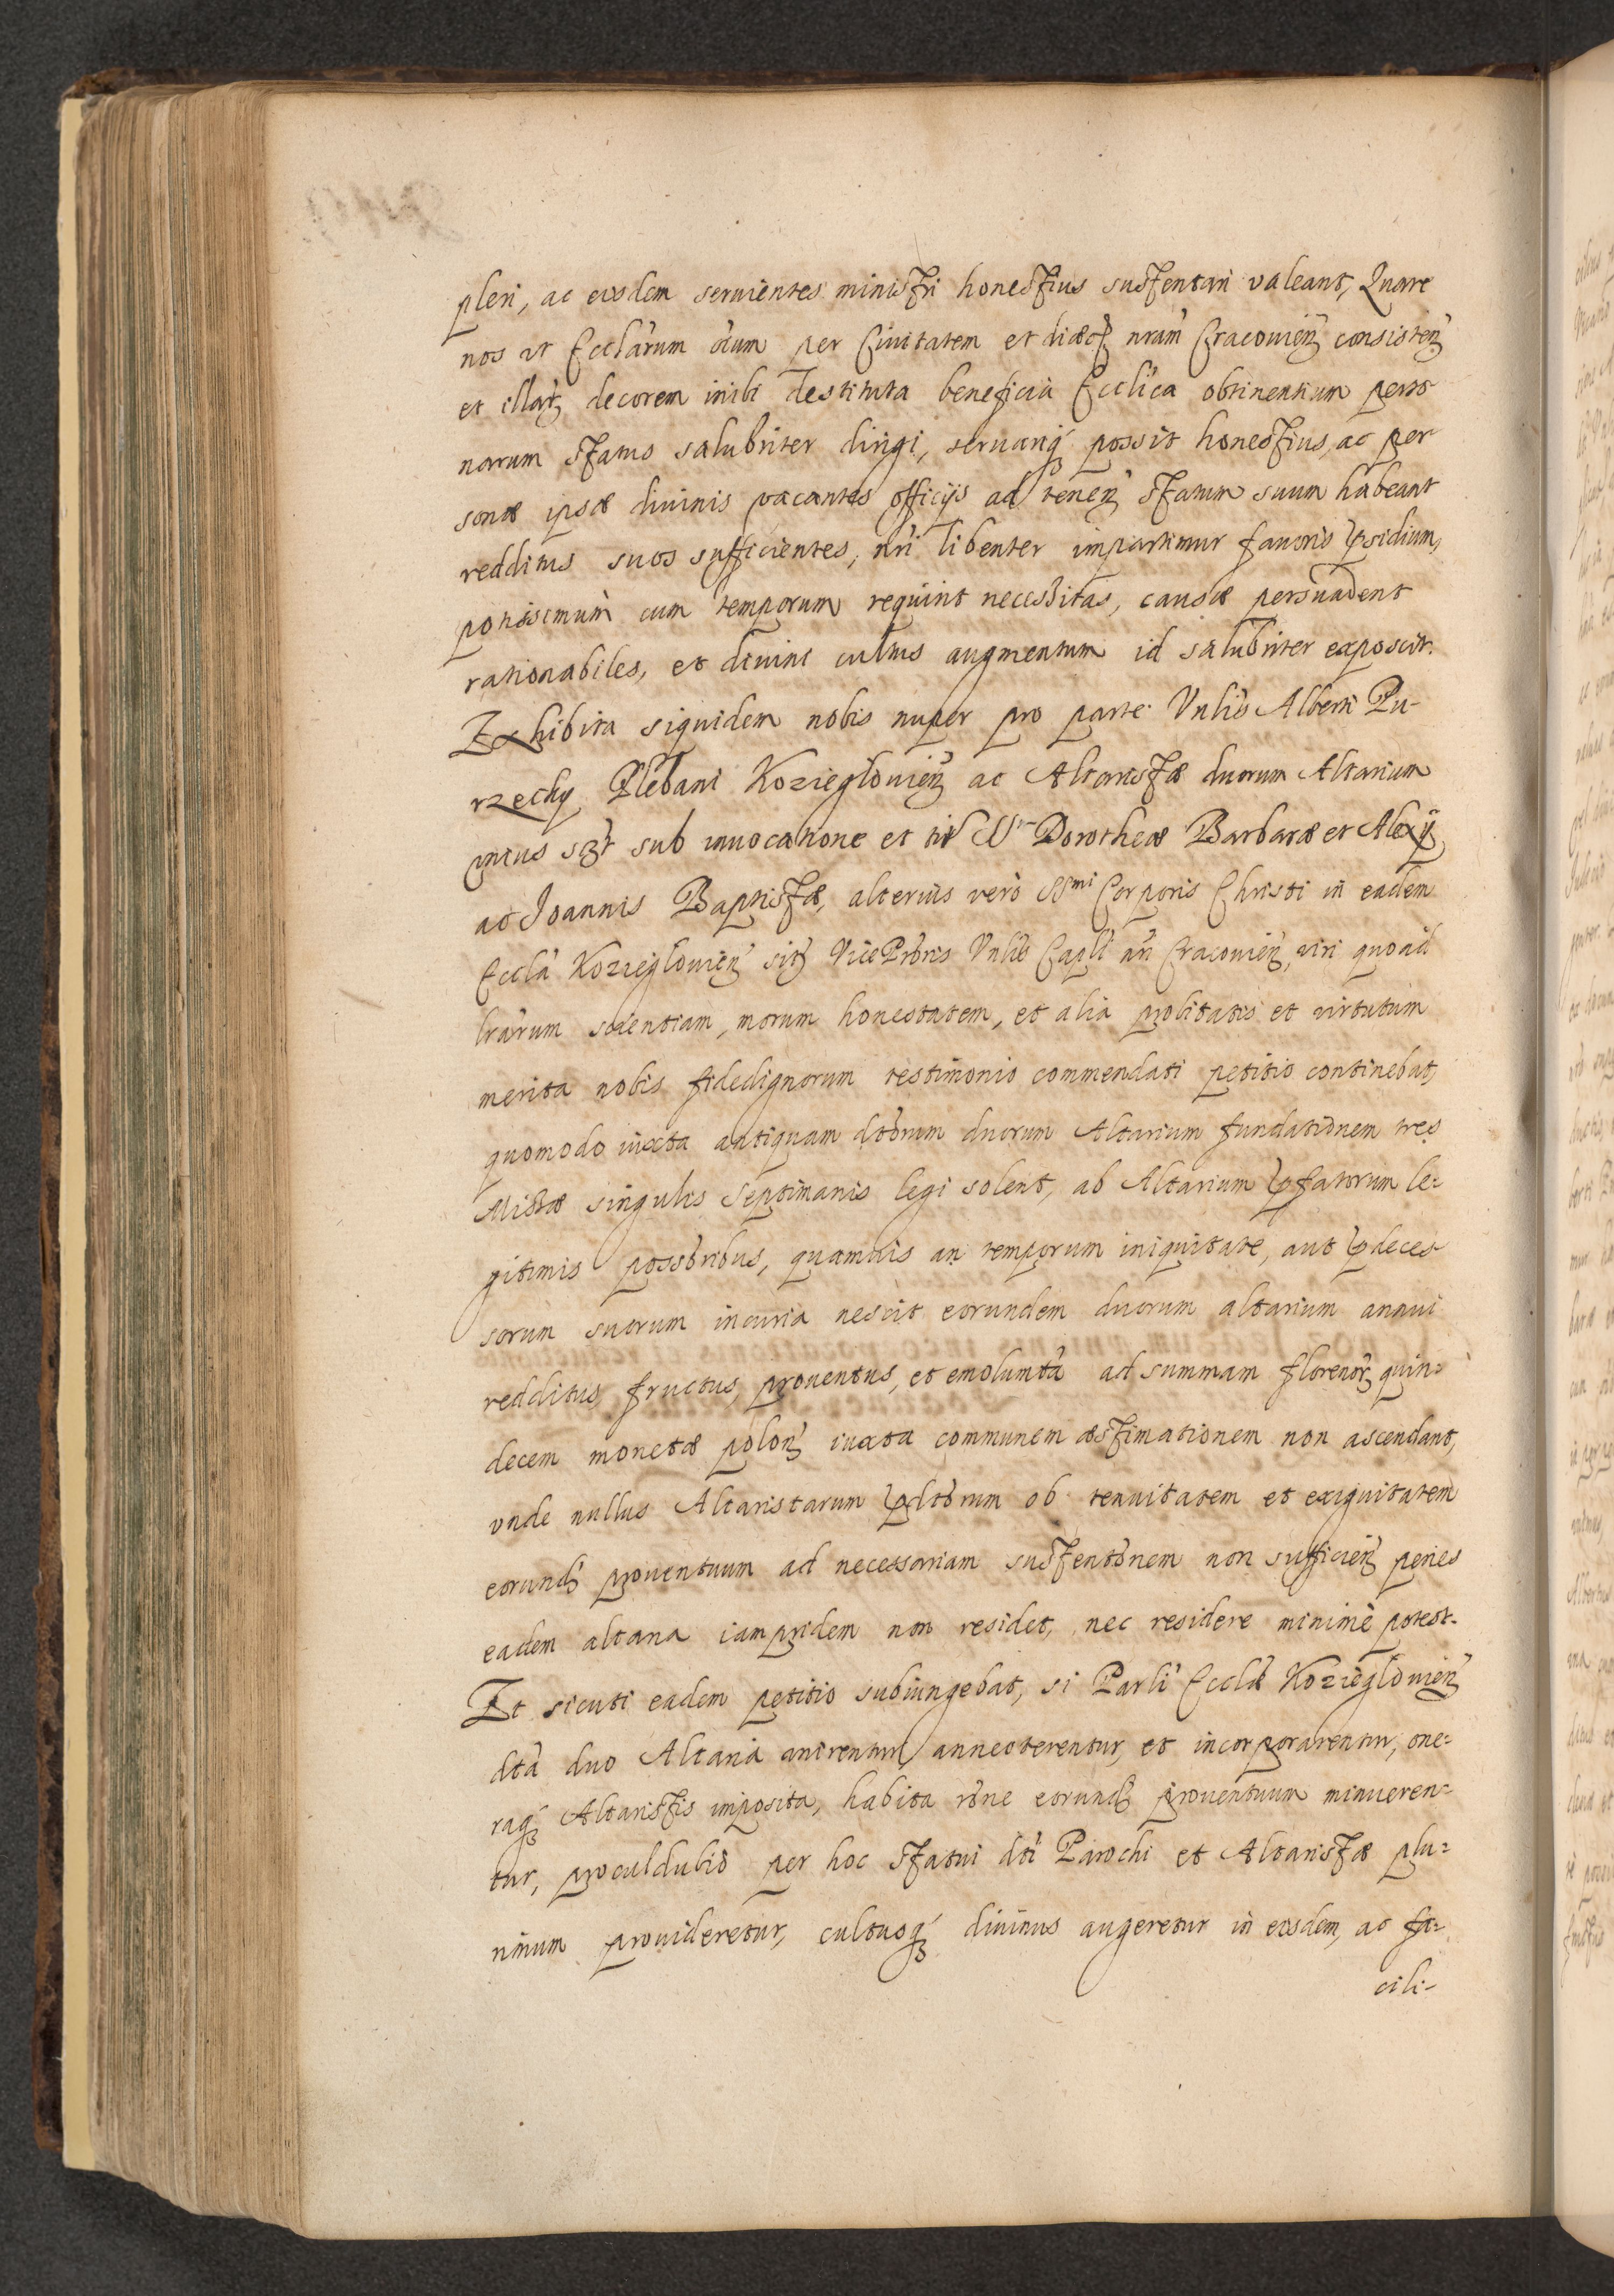 pleri, ac eisdem seruientes ministri honestius sustentari valeant, Quare
nos ut Eccl̃arum oĩum per Ciuitatem et diœcꝭ nram̃ Cracouieñ consisteñ
et illarꝫ decorem inibi destituta beneficia Eccl̃ica obtinentium perso
narum status salubriter dirigi, seruariqꝫ possit honestius, ac per
sonæ ipsæ diuinis vacantes officijs ad teneñ statum suum habeant
redditus suos sufficientes, nr̃i libenter impartimur fauoris p̃sidium,
potissimum̀ cum temporum requirit necessitas, causæ persuadent
rationabiles, et diuini cultus augmentum id salubriter exposcit.
Exhibita siquidem nobis nuper pro parte Vnlis̃ Alberti Pu-
rzechy Plebani Kozieglouieñ ac Altaristæ duorum Altarium
unius sꝫt sub inuocatione et tit̃ SS Dorotheæ Barbaræ et Alexij
ac Joannis Baptistæ, alterius verò SSmi Corporis Christi in eadem
Eccla̓ Koziegloiueñ sitꝫ VicePrõris Vnlis̃ Capl̃i añ Cracouieñ, viri quoad
lrãrum scientiam, morum honestatem, et alia probitatis et virtutum
merita nobis fidedignorum testimonio commendati petitio continebat,
quomodo iuxta antiquam dtõrum duorum Altarium fundationem tres
Missæ singulis Septimanis legi solent, ab Altarium p̃fatorum le-
gitimis possõribus, quamuis an temporum iniquitate, aut p̃deces
sorum suorum incuria nescit eorundem duorum altarium annui
redditus, fructus, prouentus, et emolumtã ad summam florenorꝫ quin-
decem monetæ poloñ iuxta communem æstimationem non ascendant,
vnde nullus Altaristarum p̃dtõrum ob tenuitatem et exiguitatem
eorundꝫ prouentuum ad necessariam sustentõnem non sufficieñ penes
eadem altaria iampridem non residet, nec residere minimè potest.
Et sicuti eadem petitio subiungebat, si Parl̃i Eccl̃æ Koziegloiueñ
dtã duo Altaria unirentur, annecterentur, et incorporarentur, one-
raqꝫ Altaristis imposita, habita rõne eorundꝫ prouentuum minueren-
tur, proculdubiò per hoc statui dtĩ Parochi et Altaristæ plu-
rimum prouideretur, cultusqꝫ diuinus augeretur in eisdem, ac fa-
cili-